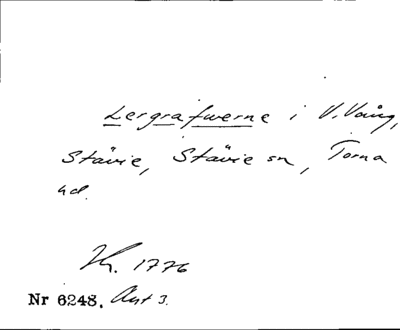 Lergrafwerne i V. Vång,
Stävie, Stävie sn, Torna
hd.
1776
Nr 6248. Akt 3.